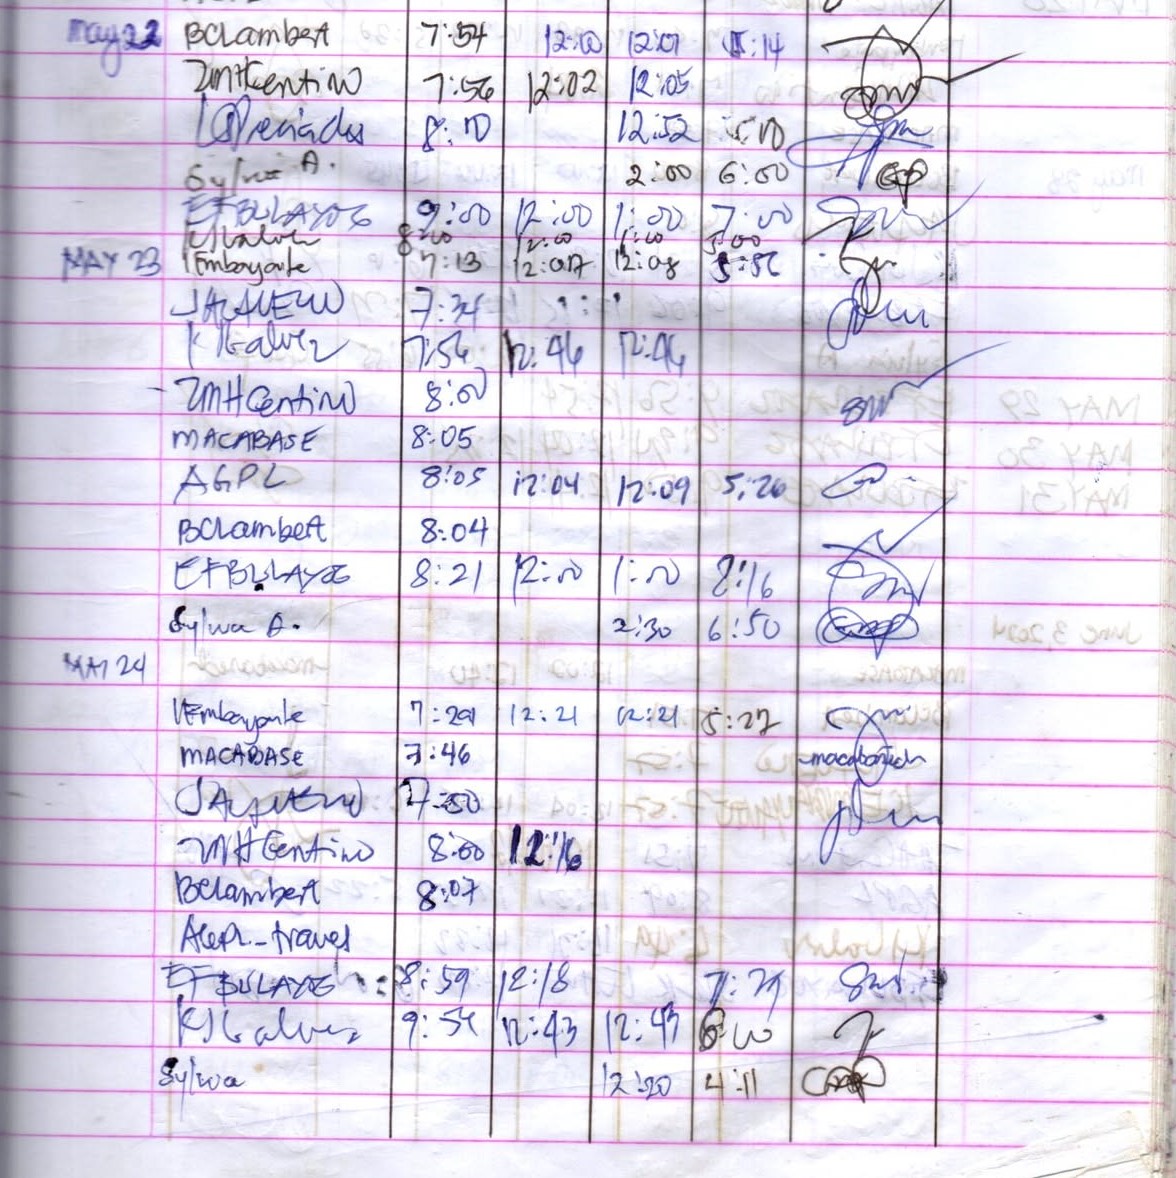 May 22 BCLambert 7:54 12:00 12:01 5:14
ZMHCentino 7:56 12:02 12:05
8:10 12:52 5:10
Sylwa A. 2:00 6:00
EFBULAYOG 9:00 12:00 1:00 7:00
KJGalvez 8:00 12:00 1:00 5:00
MAY 23 VEmbayarte 7:13 12:07 12:08 5:56
JALAUENO 7:34
KJGalvez 7:56 12:46 12:46
ZMHCentino 8:00
MACABASE 8:05
AGPL 8:05 12:04 12:09 5:26
BCLambert 8:04
EFBULAYOG 8:21 12:00 1:00 8:16
Sylwa A. 2:30 6:50
MAY 24
VEmbayarte 7:29 12:21 12:21 5:27
MACABASE 7:46
7:50
ZMHCentino 8:00 12:16
BCLambert 8:07
travel
EFBULAYOG 8:59 12:18 7:29
KJGalvez 9:54 12:43 12:43 6:00
Sylwa 12:20 4:11